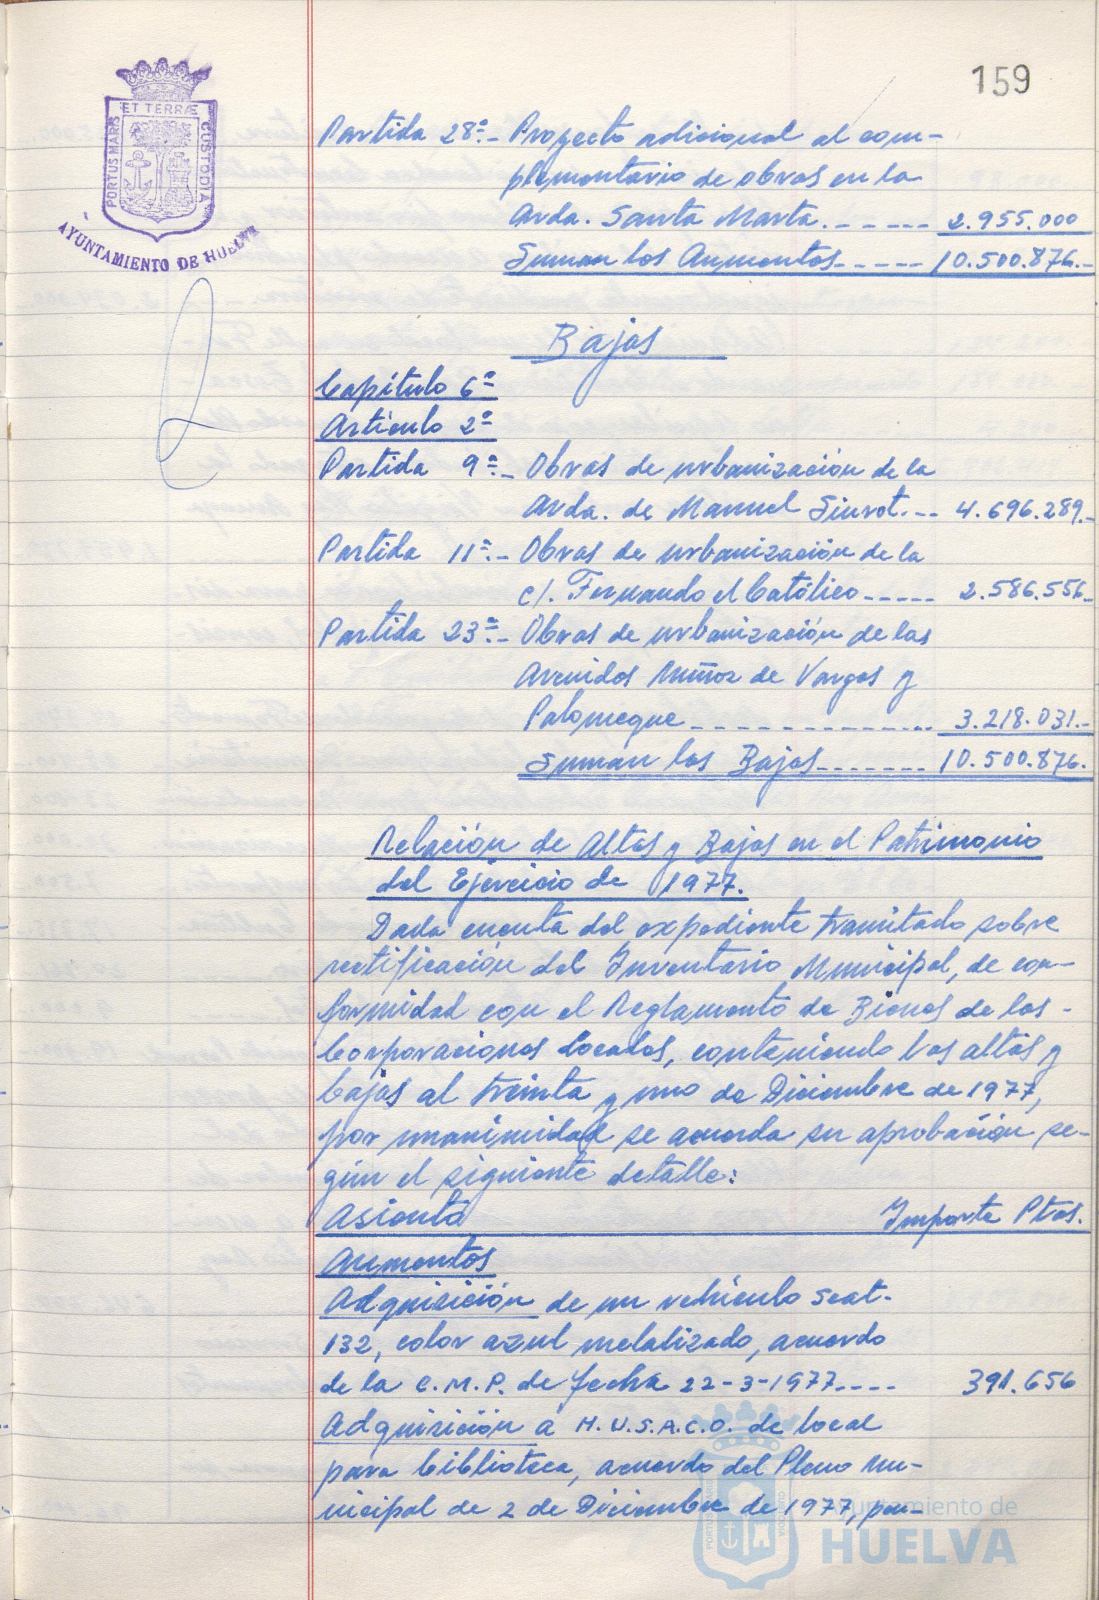 159
ET TERRÆ
PORTUS MARIS
CUSTODIA
AYUNTAMIENTO DE HUELVA
Partida 28ª.- Proyecto adicional al com-
plementario de obras en la
Avda. Santa Marta.------ 2.955.000
Suman los Aumentos----- 10.500.876.-
Bajas
Capítulo 6º
Artículo 2º
Partida 9ª.- Obras de urbanización de la
Avda. de Manuel Siurot.-- 4.696.289.-
Partida 11ª.- Obras de urbanización de la
c/. Fernando el Católico----- 2.586.556.-
Partida 23ª.- Obras de urbanización de las
Avenidas Muñoz de Vargas y
Palomeque------------- 3.218.031.-
Suman las Bajas------- 10.500.876.
Relación de Altas y Bajas en el Patrimonio
del Ejercicio de 1977.
Dada cuenta del expediente tramitado sobre
rectificación del Inventario Municipal, de con-
formidad con el Reglamento de Bienes de las-
Corporaciones Locales, conteniendo las altas y
bajas al treinta y uno de Diciembre de 1977,
por unanimidad se acuerda su aprobación se-
gún el siguiente detalle:
Asiento Importe Ptas.
Aumentos
Adquisición de un vehículo Seat-
132, color azul metalizado, acuerdo
de la C.M.P. de fecha 22-3-1977---- 391.656
Adquisición a H.U.S.A.C.O. de local
para biblioteca, acuerdo del Pleno Mu-
nicipal de 2 de Diciembre de 1977, por-
Ayuntamiento de
HUELVA